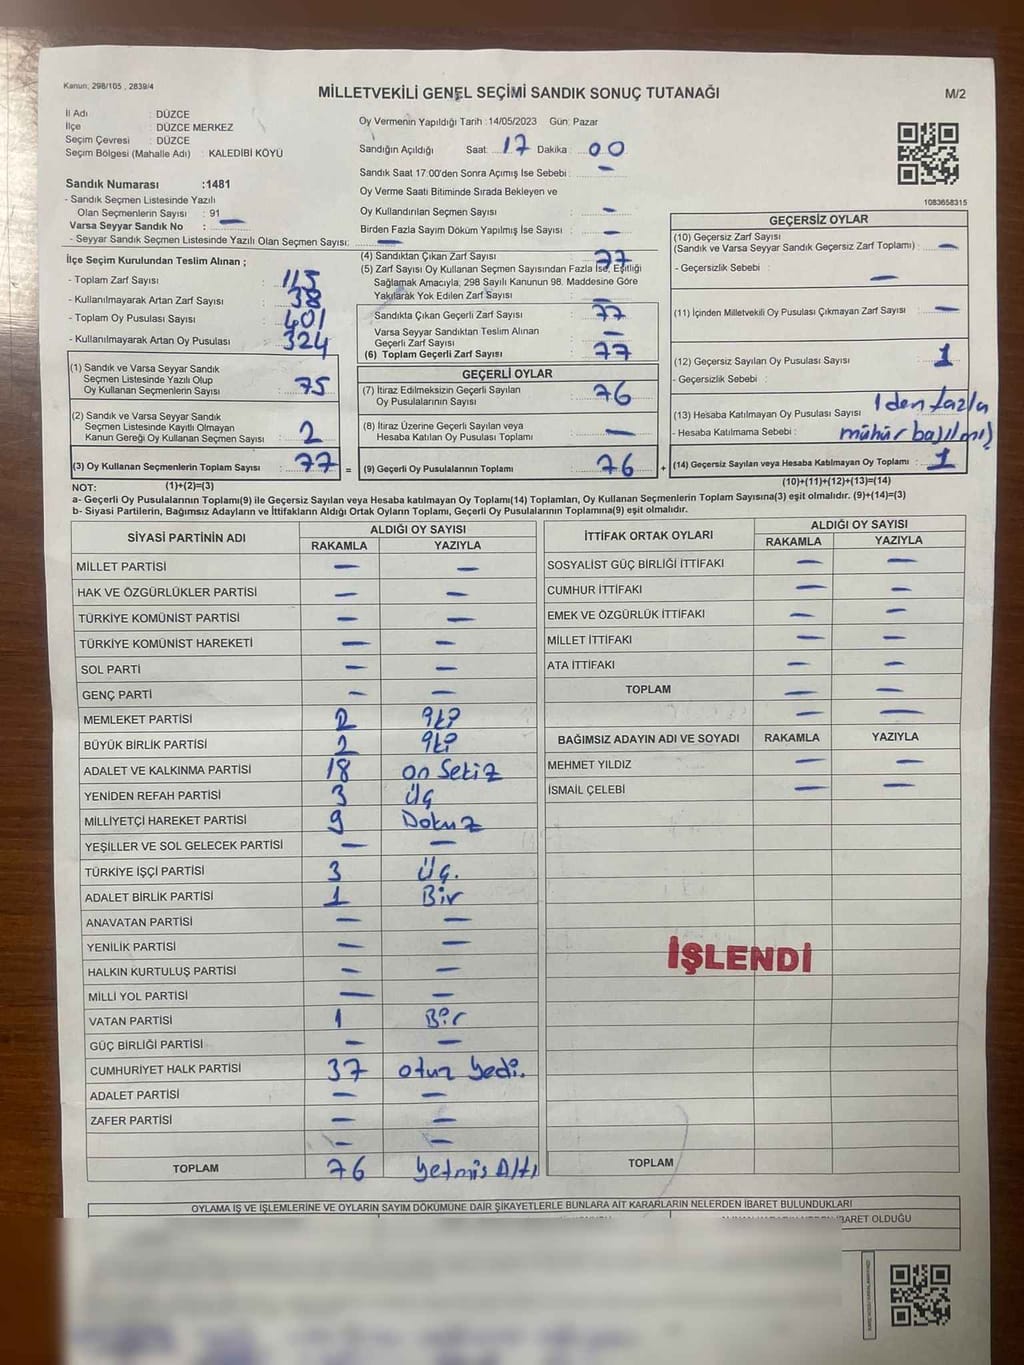 Kanun: 298/105 , 2839/4
MİLLETVEKİLİ GENEL SEÇİMİ SANDIK SONUÇ TUTANAĞI
M/2
İl Adı : DÜZCE
İlçe : DÜZCE MERKEZ
Seçim Çevresi : DÜZCE
Seçim Bölgesi (Mahalle Adı) : KALEDİBİ KÖYÜ
Sandık Numarası :1481
- Sandık Seçmen Listesinde Yazılı
Olan Seçmenlerin Sayısı : 91
Varsa Seyyar Sandık No : —
- Seyyar Sandık Seçmen Listesinde Yazılı Olan Seçmen Sayısı: —
Oy Vermenin Yapıldığı Tarih :14/05/2023 Gün: Pazar
Sandığın Açıldığı Saat: 17 Dakika: 00
Sandık Saat 17:00'den Sonra Açımış İse Sebebi : —
Oy Verme Saati Bitiminde Sırada Bekleyen ve
Oy Kullandırılan Seçmen Sayısı : —
Birden Fazla Sayım Döküm Yapılmış İse Sayısı : —
1083658315
İlçe Seçim Kurulundan Teslim Alınan ;
- Toplam Zarf Sayısı : 115
- Kullanılmayarak Artan Zarf Sayısı : 38
- Toplam Oy Pusulası Sayısı : 401
- Kullanılmayarak Artan Oy Pusulası : 324
(1) Sandık ve Varsa Seyyar Sandık
Seçmen Listesinde Yazılı Olup
Oy Kullanan Seçmenlerin Sayısı : 75
(2) Sandık ve Varsa Seyyar Sandık
Seçmen Listesinde Kayıtlı Olmayan
Kanun Gereği Oy Kullanan Seçmen Sayısı : 2
(3) Oy Kullanan Seçmenlerin Toplam Sayısı : 77
(4) Sandıktan Çıkan Zarf Sayısı : 77
(5) Zarf Sayısı Oy Kullanan Seçmen Sayısından Fazla İse, Eşitliği
Sağlamak Amacıyla, 298 Sayılı Kanunun 98. Maddesine Göre
Yakılarak Yok Edilen Zarf Sayısı : —
Sandıkta Çıkan Geçerli Zarf Sayısı : 77
Varsa Seyyar Sandıktan Teslim Alınan
Geçerli Zarf Sayısı : —
(6) Toplam Geçerli Zarf Sayısı : 77
GEÇERLİ OYLAR
(7) İtiraz Edilmeksizin Geçerli Sayılan
Oy Pusulalarının Sayısı : 76
(8) İtiraz Üzerine Geçerli Sayılan veya
Hesaba Katılan Oy Pusulası Toplamı : —
= (9) Geçerli Oy Pusulalarının Toplamı : 76 +
GEÇERSİZ OYLAR
(10) Geçersiz Zarf Sayısı
(Sandık ve Varsa Seyyar Sandık Geçersiz Zarf Toplamı) : —
- Geçersizlik Sebebi : —
(11) İçinden Milletvekili Oy Pusulası Çıkmayan Zarf Sayısı : —
(12) Geçersiz Sayılan Oy Pusulası Sayısı : 1
- Geçersizlik Sebebi :
(13) Hesaba Katılmayan Oy Pusulası Sayısı : 1 den fazla
- Hesaba Katılmama Sebebi : mühür basılmış
(14) Geçersiz Sayılan veya Hesaba Katılmayan Oy Toplamı : 1
NOT: (1)+(2)=(3) (10)+(11)+(12)+(13)=(14)
a- Geçerli Oy Pusulalarının Toplamı(9) ile Geçersiz Sayılan veya Hesaba katılmayan Oy Toplamı(14) Toplamları, Oy Kullanan Seçmenlerin Toplam Sayısına(3) eşit olmalıdır. (9)+(14)=(3)
b- Siyasi Partilerin, Bağımsız Adayların ve İttifakların Aldığı Ortak Oyların Toplamı, Geçerli Oy Pusulalarının Toplamına(9) eşit olmalıdır.
SİYASİ PARTİNİN ADI ALDIĞI OY SAYISI
RAKAMLA YAZIYLA
MİLLET PARTİSİ — —
HAK VE ÖZGÜRLÜKLER PARTİSİ — —
TÜRKİYE KOMÜNİST PARTİSİ — —
TÜRKİYE KOMÜNİST HAREKETİ — —
SOL PARTİ — —
GENÇ PARTİ — —
MEMLEKET PARTİSİ 2 iki
BÜYÜK BİRLİK PARTİSİ 2 iki
ADALET VE KALKINMA PARTİSİ 18 on Sekiz
YENİDEN REFAH PARTİSİ 3 Üç
MİLLİYETÇİ HAREKET PARTİSİ 9 Dokuz
YEŞİLLER VE SOL GELECEK PARTİSİ — —
TÜRKİYE İŞÇİ PARTİSİ 3 Üç.
ADALET BİRLİK PARTİSİ 1 Bir
ANAVATAN PARTİSİ — —
YENİLİK PARTİSİ — —
HALKIN KURTULUŞ PARTİSİ — —
MİLLİ YOL PARTİSİ — —
VATAN PARTİSİ 1 Bir
GÜÇ BİRLİĞİ PARTİSİ — —
CUMHURİYET HALK PARTİSİ 37 otuz yedi.
ADALET PARTİSİ — —
ZAFER PARTİSİ — —
— —
TOPLAM 76 yetmiş Altı
İTTİFAK ORTAK OYLARI ALDIĞI OY SAYISI
RAKAMLA YAZIYLA
SOSYALİST GÜÇ BİRLİĞİ İTTİFAKI — —
CUMHUR İTTİFAKI — —
EMEK VE ÖZGÜRLÜK İTTİFAKI — —
MİLLET İTTİFAKI — —
ATA İTTİFAKI — —
TOPLAM — —
— —
BAĞIMSIZ ADAYIN ADI VE SOYADI RAKAMLA YAZIYLA
MEHMET YILDIZ — —
İSMAİL ÇELEBİ — —
İŞLENDİ
TOPLAM
OYLAMA İŞ VE İŞLEMLERİNE VE OYLARIN SAYIM DÖKÜMÜNE DAİR ŞİKAYETLERLE BUNLARA AİT KARARLARIN NELERDEN İBARET BULUNDUKLARI
İBARET OLDUĞU